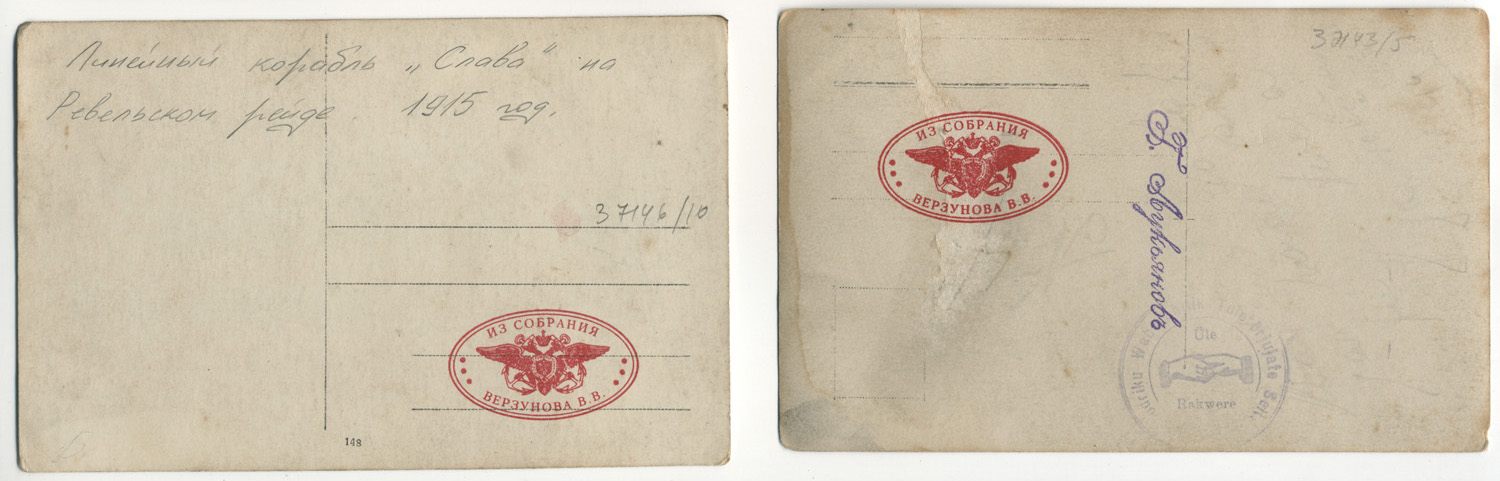 Линейный корабль „Слава" на
Ревельском рейде. 1915 год.
37146/10
ИЗ СОБРАНИЯ
ВЕРЗУНОВА В.В.
148
37143/5
ИЗ СОБРАНИЯ
ВЕРЗУНОВА В.В.
Г. Лукьяновъ
Üle
Rakwere